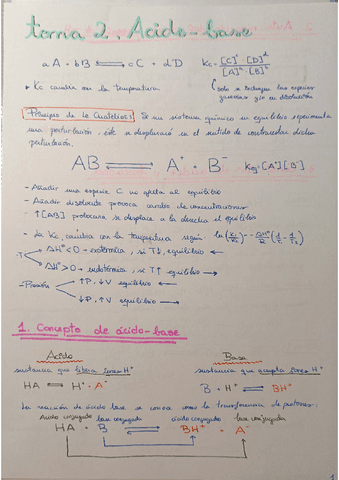 tema 2. Acido-base
aA + bB ⇌ cC + dD Kc = [C]ᶜ·[D]ᵈ / [A]ᵃ·[B]ᵇ
▸ Kc cambia con la temperatura. solo se incluyen las especies
gaseosas y/o en disolución
Principio de Le Chatelier: Si un sistema químico en equilibrio experimenta
una perturbación, éste se desplazará en el sentido de contrarrestar dicha
perturbación.
AB ⇌ A⁺ + B⁻ Keq = [A⁺][B⁻]
- Añadir una especie C no afecta al equilibrio
- Añadir disolvente provoca cambio de concentraciones
- ↑[AB] provocará se desplace a la derecha el equilibrio
- La Kc cambia con la temperatura según
- T ΔH° < 0 - exotérmica, si T↓ equilibrio →
ΔH° > 0 - endotérmica, si T↑ equilibrio →
- Presión ↑P, ↓V equilibrio ←
↓P, ↑V equilibrio →
1. Concepto de ácido-base
Acido Base
sustancia que libera iones H⁺ sustancia que acepta iones H⁺
HA ⇌ H⁺ + A⁻ B + H⁺ ⇌ BH⁺
La reacción de ácido base se conoce como la transferencia de protones.
Acido conjugado base conjugada ácido conjugado base conjugada
HA + B ⇌ BH⁺ + A⁻
1